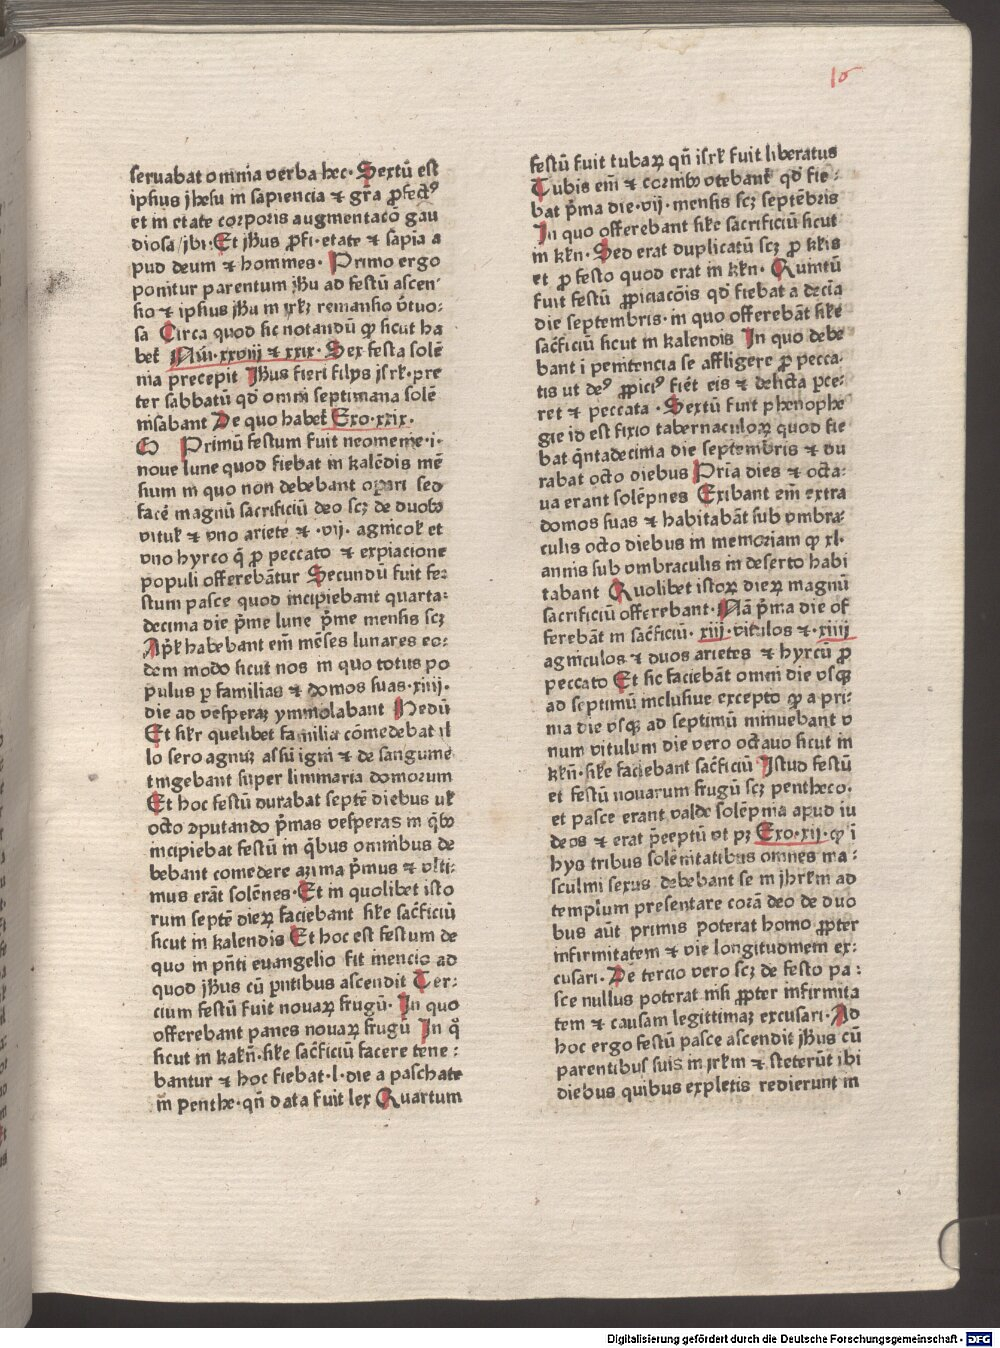 15
seruabat omnia verba hec. Sextū est
ipsius jhesu in sapiencia ⁊ gr̄a ꝓfectꝰ
et in etate corporis augmentacō gau
diosa / ibi. Et jħus ꝓfi. etate ⁊ sapia a
pud deum ⁊ hommes. Primo ergo
ponitur parentum jħu ad festū ascen
sio ⁊ ipsius jħu in jrłꝫ remansio v̄tuo:
sa Circa quod sic notandū ꝙ sicut ha
bet̄ Nūi. xxviij ⁊ xxix. Sex festa solē
nia precepit jħus fieri filijs jsrł. pre
ter sabbatū qd̄ omni septimana solē
nisabant De quo habet̄ Exo. xxix.
Primū festum fuit neomenie. i.
noue lune quod fiebat in kalēdis mē
sium in quo non debebant opari sed
facē magnū sacrificiū deo scꝫ de duobꝰ
vitul̄ ⁊ vno ariete ⁊ . vij. agnicol̄ et
vno hyrco q̄ ꝓ peccato ⁊ expiacione
populi offerebātur Secundū fuit fe:
stum pasce quod incipiebant quarta:
decima die p̄me lune p̄me mensis scꝫ
Apł habebant em̄ mēses lunares eo:
dem modo sicut nos in quo totus po
pulus ꝑ familias ⁊ domos suas. xiiij.
die ad vesperaꝫ ymmolabant Hedū
Et sikr quelibet familia cōmedebat il
lo sero agnuꝫ assū igni ⁊ de sanguine
tingebant super limmaria domorum
Et hoc festū durabat septē diebus vł
octo ꝯputando p̄mas vesperas in q̄bꝰ
incipiebat festū in q̄bus omnibus de
bebant comedere azima p̄mus ⁊ vlti:
mus erāt solēnes. Et in quolibet isto
rum septē dieꝝ faciebant sike sac̄ficiū
sicut in kalendis Et hoc est festum de
quo in p̄nti euangelio fit mencio ad
quod jħus cū p̄ntibus ascendit Ter:
cium festū fuit nouaꝝ frugū. In quo
offerebant panes nouaꝝ frugū In q̄
sicut in kakn̄. sike sac̄ficiū facere tene:
bantur ⁊ hoc fiebat. l. die a paschate
in̄ penthe. qn̄ data fuit lex Quartum
festū fuit tubaꝝ qn̄ isrł fuit liberatus
Tubis em̄ ⁊ cornibꝰ vtebant̄ qd̄ fie:
bat p̄ma die. vij. mensis scꝫ septēbris
In quo offerebant sike sacrificiū sicut
in kkn̄. Sed erat duplicatū scꝫ ꝓ kkis
et ꝓ festo quod erat in kkn̄. Quintū
fuit festū ꝓpiciacōis qd̄ fiebat a decīa
die septembris. in quo offerebāt sike
sac̄ficiū sicut in kalendis In quo debe
bant ī penitencia se affligere ꝓ pecca:
tis ut deꝰ ꝓpiciꝰ fiēt eis ⁊ delicta ꝑce:
ret ⁊ peccata. Sextū fuit phenophe
gie id est fixio tabernaculoꝝ quod fie
bat q̄ntadecima die septembris ⁊ du
rabat octo diebus Pria dies ⁊ octa:
ua erant solēpnes Exibant em̄ extra
domos suas ⁊ habitabāt sub vmbra:
culis octo diebus in memoriam ꝙ xl.
annis sub vmbraculis in deserto habi
tabant Quolibet istoꝝ dieꝝ magnū
sacrificiū offerebant. Nā p̄ma die of
ferebāt in sac̄ficiū. xiij. vitulos ⁊. xiiij
agniculos ⁊ duos arietes ⁊ hyrcū ꝓ
peccato Et sic faciebāt omni die vsqꝫ
ad septimū inclusiue excepto ꝙ a pri:
ma die vsqꝫ ad septimū minuebant v
num vitulum die vero octauo sicut in
kkn̄. sike faciebant sac̄ficiū Istud festū
et festū nouarum frugū scꝫ pentheco.
et pasce erant valde solēpnia apud iu
deos ⁊ erat p̄ceptū vt pꝫ Exo. xij. ꝙ ī
hys tribus solēnitatibus omnes ma:
sculini sexus debebant se in jħrłm ad
templum presentare corā deo de duo
bus aūt primis poterat homo ꝓpter
infirmitatem ⁊ vie longitudinem ex:
cusari. De tercio vero scꝫ de festo pa:
sce nullus poterat nisi ꝓpter infirmita
tem ⁊ causam legittimaꝫ excusari. Ad
hoc ergo festū pasce ascendit jħus cū
parentibus suis in jrłm ⁊ steterūt ibi
diebus quibus expletis redierunt in
Digitalisierung gefördert durch die Deutsche Forschungsgemeinschaft - DFG